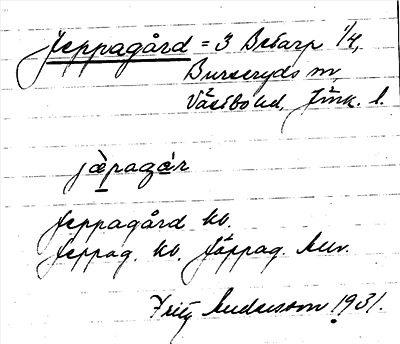 Jeppagård = 3 Betarp 1/4,
Burseryds sn,
Västbo hd, Jönk. l.
jæ̀pagár
Jeppagård kb.
Jeppag. kb. Jäppag.
Fritz Anderson 1931.